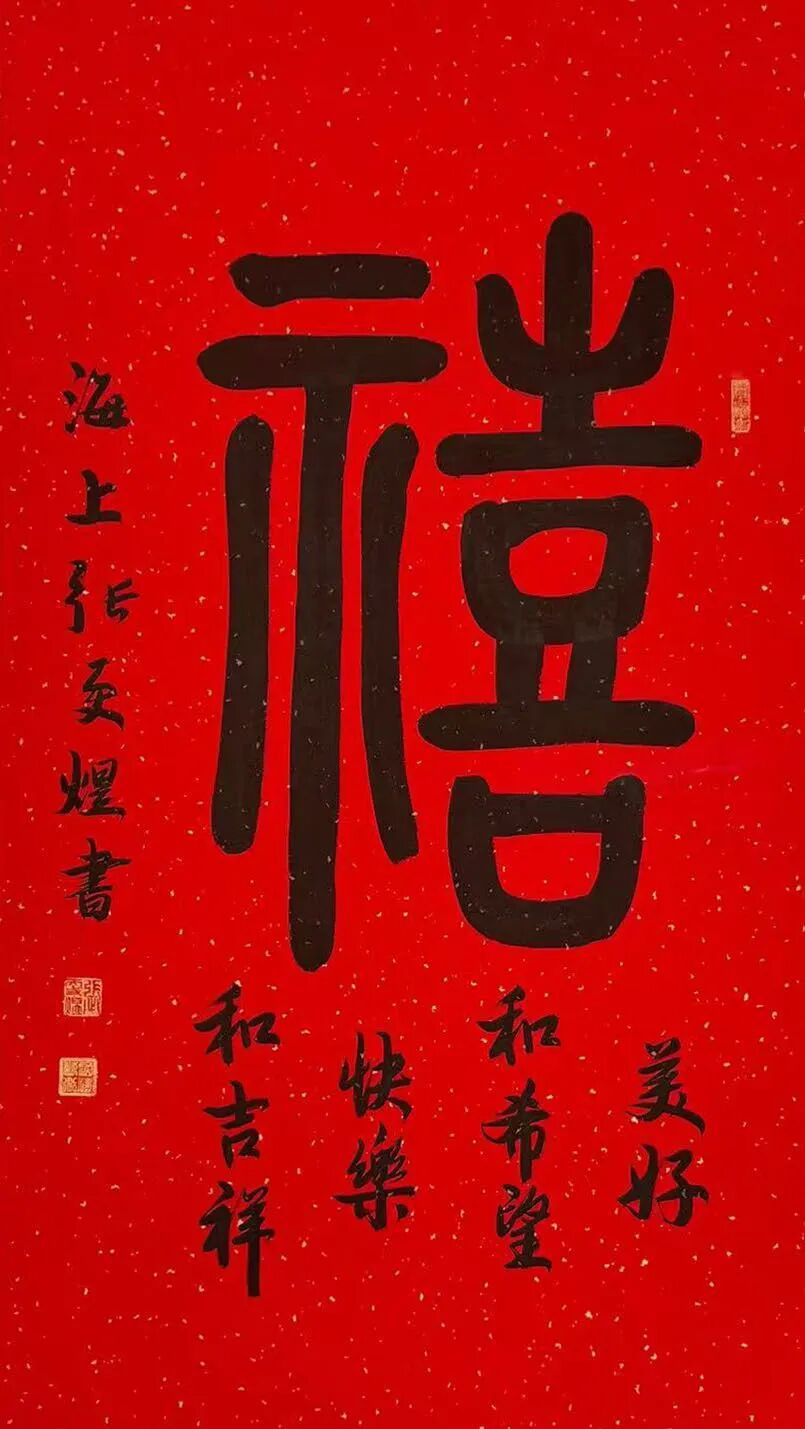 禧
美好
和希望
快樂
和吉祥
海上张更煜書